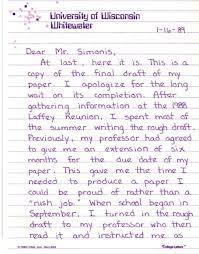 University of Wisconsin
Whitewater
1-16-89
Dear Mr. Simonis,
At last, here it is. This is a
copy of the final draft of my
paper. I apologize for the long
wait on its completion. After
gathering information at the 1988
Laffey Reunion, I spent most of
the summer writing the rough draft.
Previously, my professor had agreed
to give me an extension of six
months for the due date of my
paper. This gave me the time I
needed to produce a paper I
could be proud of rather than a
"rush job." When school began in
September, I turned in the rough
draft to my professor who then
read it and instructed me as